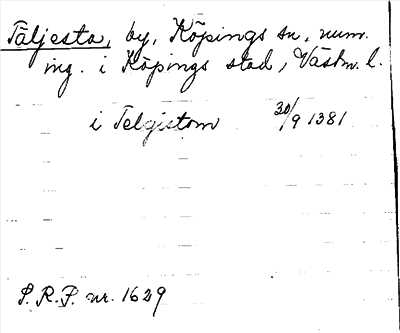 Täljesta, by, Köpings sn, num.
ing. i Köpings stad, Västm. l.
i Telgistom 30/9 1381
S. R. P. nr. 1629